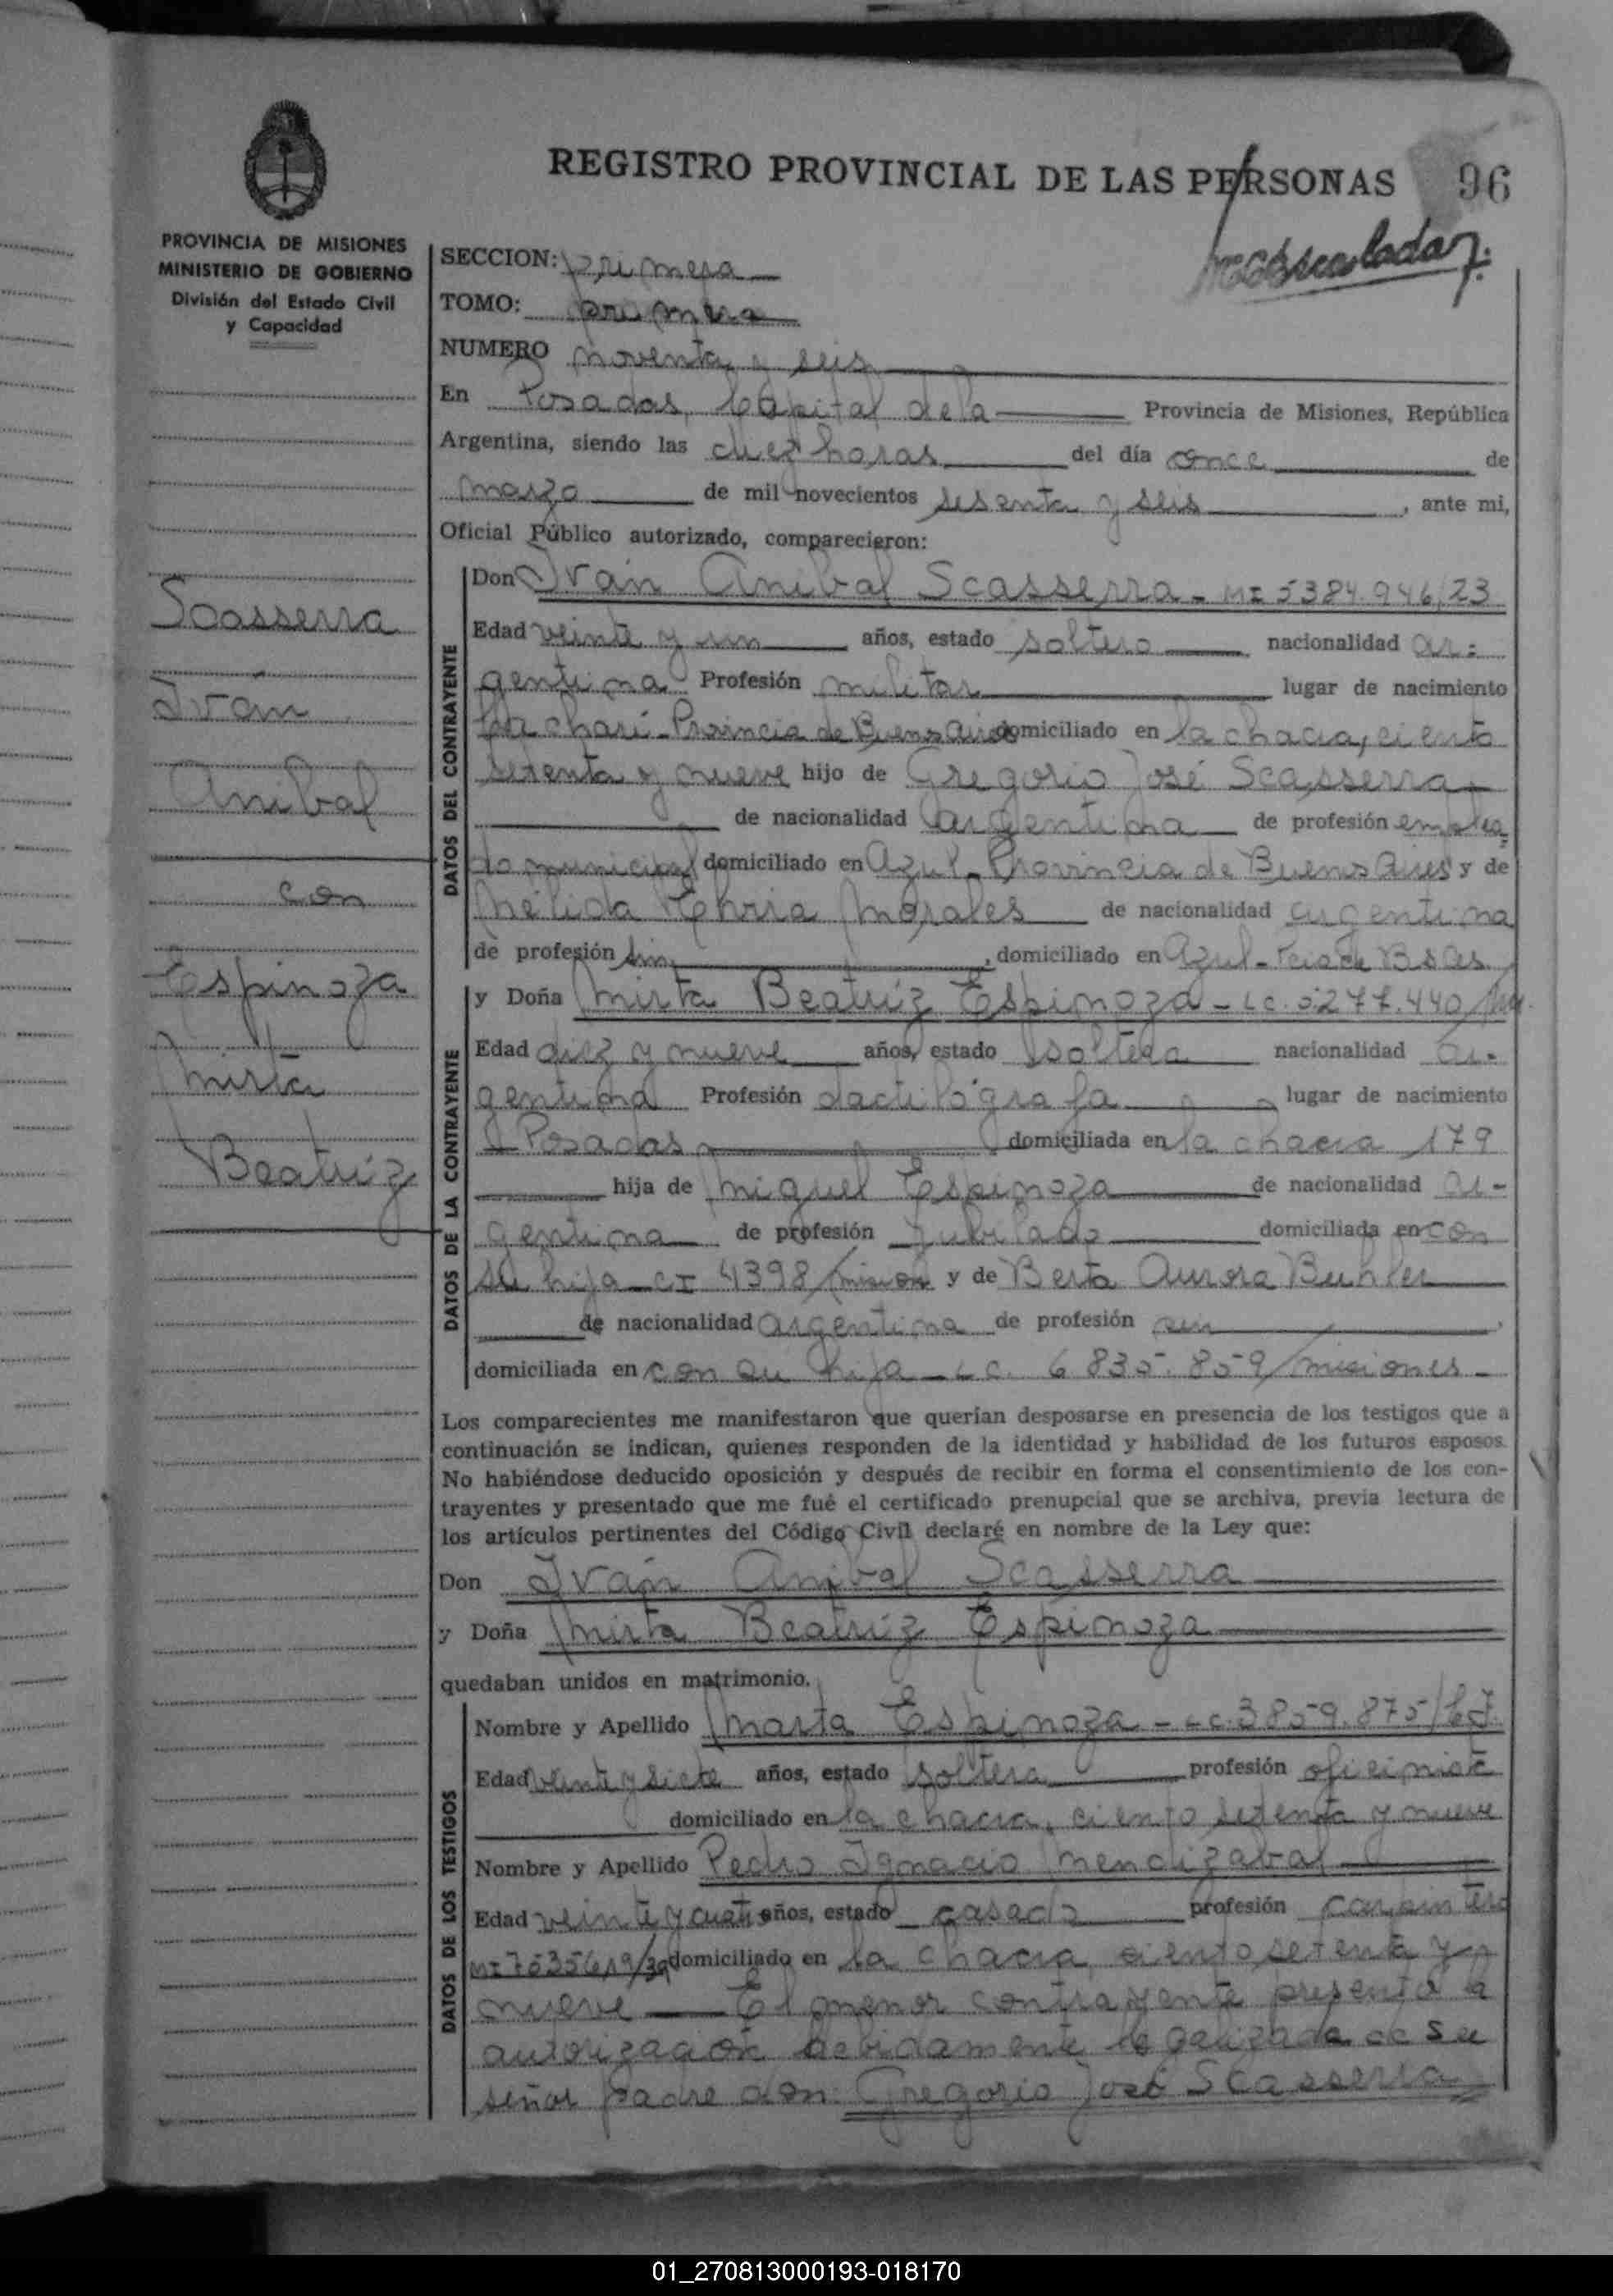 REGISTRO PROVINCIAL DE LAS PERSONAS 96
PROVINCIA DE MISIONES
MINISTERIO DE GOBIERNO
División del Estado Civil
y Capacidad
Scasserra
Iván
Anibal
con
Espinoza
Mirta
Beatriz
SECCION: primera
TOMO: primera
NUMERO noventa y seis
En Posadas, Capital de la Provincia de Misiones, República
Argentina, siendo las diez horas del día once de
marzo de mil novecientos sesenta y seis, ante mi,
Oficial Público autorizado, comparecieron:
DATOS DEL CONTRAYENTE
Don Iván Anibal Scasserra - MI 5384.946/23
Edad veinte y un años, estado soltero nacionalidad ar-
gentina Profesión militar lugar de nacimiento
Chacharí - Provincia de Buenos Aires domiciliado en la chacra, ciento
setenta y nueve hijo de Gregorio José Scasserra
de nacionalidad argentina de profesión emplea-
do municipal domiciliado en Azul - Provincia de Buenos Aires y de
Nélida Morales de nacionalidad argentina
de profesión sin, domiciliado en Azul - Pcia de Bs As
DATOS DE LA CONTRAYENTE
y Doña Mirta Beatriz Espinoza - LC. 5277.440
Edad diez y nueve años, estado soltera nacionalidad ar-
gentina Profesión dactilógrafa lugar de nacimiento
Posadas domiciliada en la chacra 179
hija de Miguel Espinoza de nacionalidad ar-
gentina de profesión jubilado domiciliada en con
su hija - CI 4398/mision y de Berta Aurora Buhler
de nacionalidad argentina de profesión sin,
domiciliada en con su hija - LC. 6.835.859/misiones -
Los comparecientes me manifestaron que querían desposarse en presencia de los testigos que a
continuación se indican, quienes responden de la identidad y habilidad de los futuros esposos.
No habiéndose deducido oposición y después de recibir en forma el consentimiento de los con-
trayentes y presentado que me fué el certificado prenupcial que se archiva, previa lectura de
los artículos pertinentes del Código Civil declaré en nombre de la Ley que:
Don Iván Anibal Scasserra
y Doña Mirta Beatriz Espinoza
quedaban unidos en matrimonio.
DATOS DE LOS TESTIGOS
Nombre y Apellido Marta Espinoza - LC. 3859.875
Edad veinte y siete años, estado soltera profesión oficinista
domiciliado en la chacra, ciento setenta y nueve
Nombre y Apellido Pedro Ignacio Mendizabal
Edad veinte y cuatro años, estado casado profesión carpintero
MI 7535619/39 domiciliado en la chacra, ciento setenta y
nueve — El menor contrayente presenta la
autorización debidamente legalizada de su
señor padre don: Gregorio José Scasserra
01_270813000193-018170